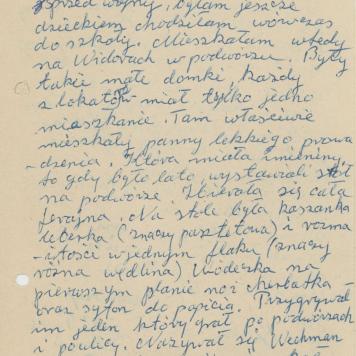 sprzed wojny, byłam jeszcze
dzieckiem chodziłam wówczas
do szkoły. Mieszkałam wtedy
na Widorach w podwórzu. Były
takie małe domki, każdy
z lokatorów miał tylko jedno
mieszkanie. Tam właściwie
mieszkały panny lekkiego prowa
-dzenia. Która miała imieniny,
to gdy było lato, wystawiali stół
na podwórze. Zbierała się cała
ferajna. Na stole była kaszanka
leberka (znaczy pasztetowa) i rozma
-itości w jednym flaku (znaczy
rozna wędlina) Wódeczka na
pierwszym planie no i cherbatka
oraz syfon do popicia. Przygrywał
im jeden który grał po podwórzach
i poulicy. Nazywał się Wechman